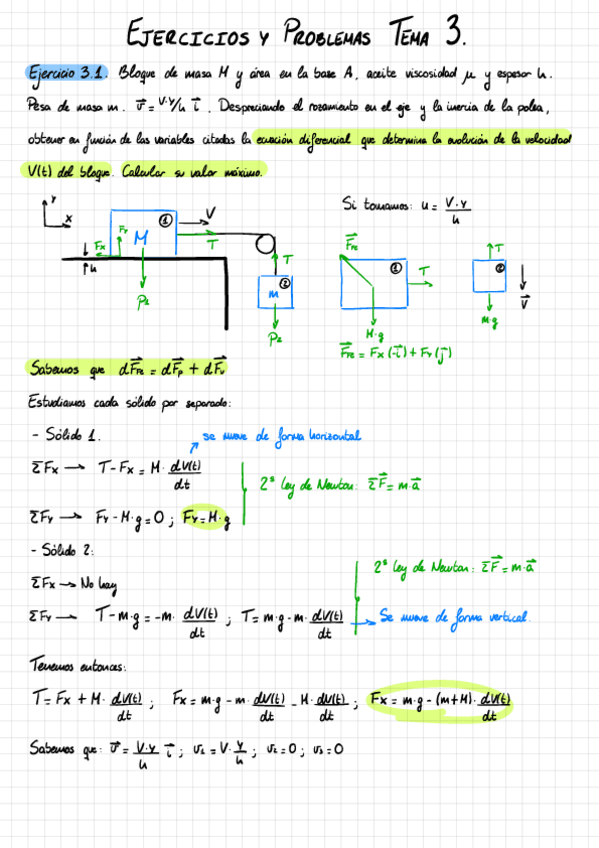 EJERCICIOS Y PROBLEMAS TEMA 3.
Ejercicio 3.1. Bloque de masa M y área en la base A, aceite viscosidad μ y espesor h.
Pesa de masa m. v⃗ = V·y/h i⃗. Despreciando el rozamiento en el eje y la inercia de la polea,
obtener en función de las variables citadas la ecuación diferencial que determina la evolución de la velocidad
V(t) del bloque. Calcular su valor máximo.
Si tomamos: u = V·y/h
Y
X
Fx
Fy
M
①
V
T
h
P₂
T
②
m
P₂
F⃗Fe
①
T
M·g
F⃗Fe = Fx (-i⃗) + Fy (j⃗)
T
②
m·g
V⃗
Sabemos que dF⃗Fe = dF⃗p + dF⃗v
Estudiamos cada sólido por separado:
- Sólido 1.
se mueve de forma horizontal
ΣFx → T - Fx = M· dV(t)/dt
2ª Ley de Newton: ΣF⃗ = m·a⃗
ΣFy → Fy - M·g = 0 ; Fy = M·g
- Sólido 2:
2ª Ley de Newton: ΣF⃗ = m·a⃗
ΣFx → No hay
ΣFy → T - m·g = -m· dV(t)/dt ; T = m·g - m· dV(t)/dt → Se mueve de forma vertical.
Tenemos entonces:
T = Fx + M· dV(t)/dt ; Fx = m·g - m· dV(t)/dt - M· dV(t)/dt ; Fx = m·g - (m+M)· dV(t)/dt
Sabemos que: v⃗ = V·y/h i⃗ ; v₁ = V· y/h ; v₂ = 0 ; v₃ = 0